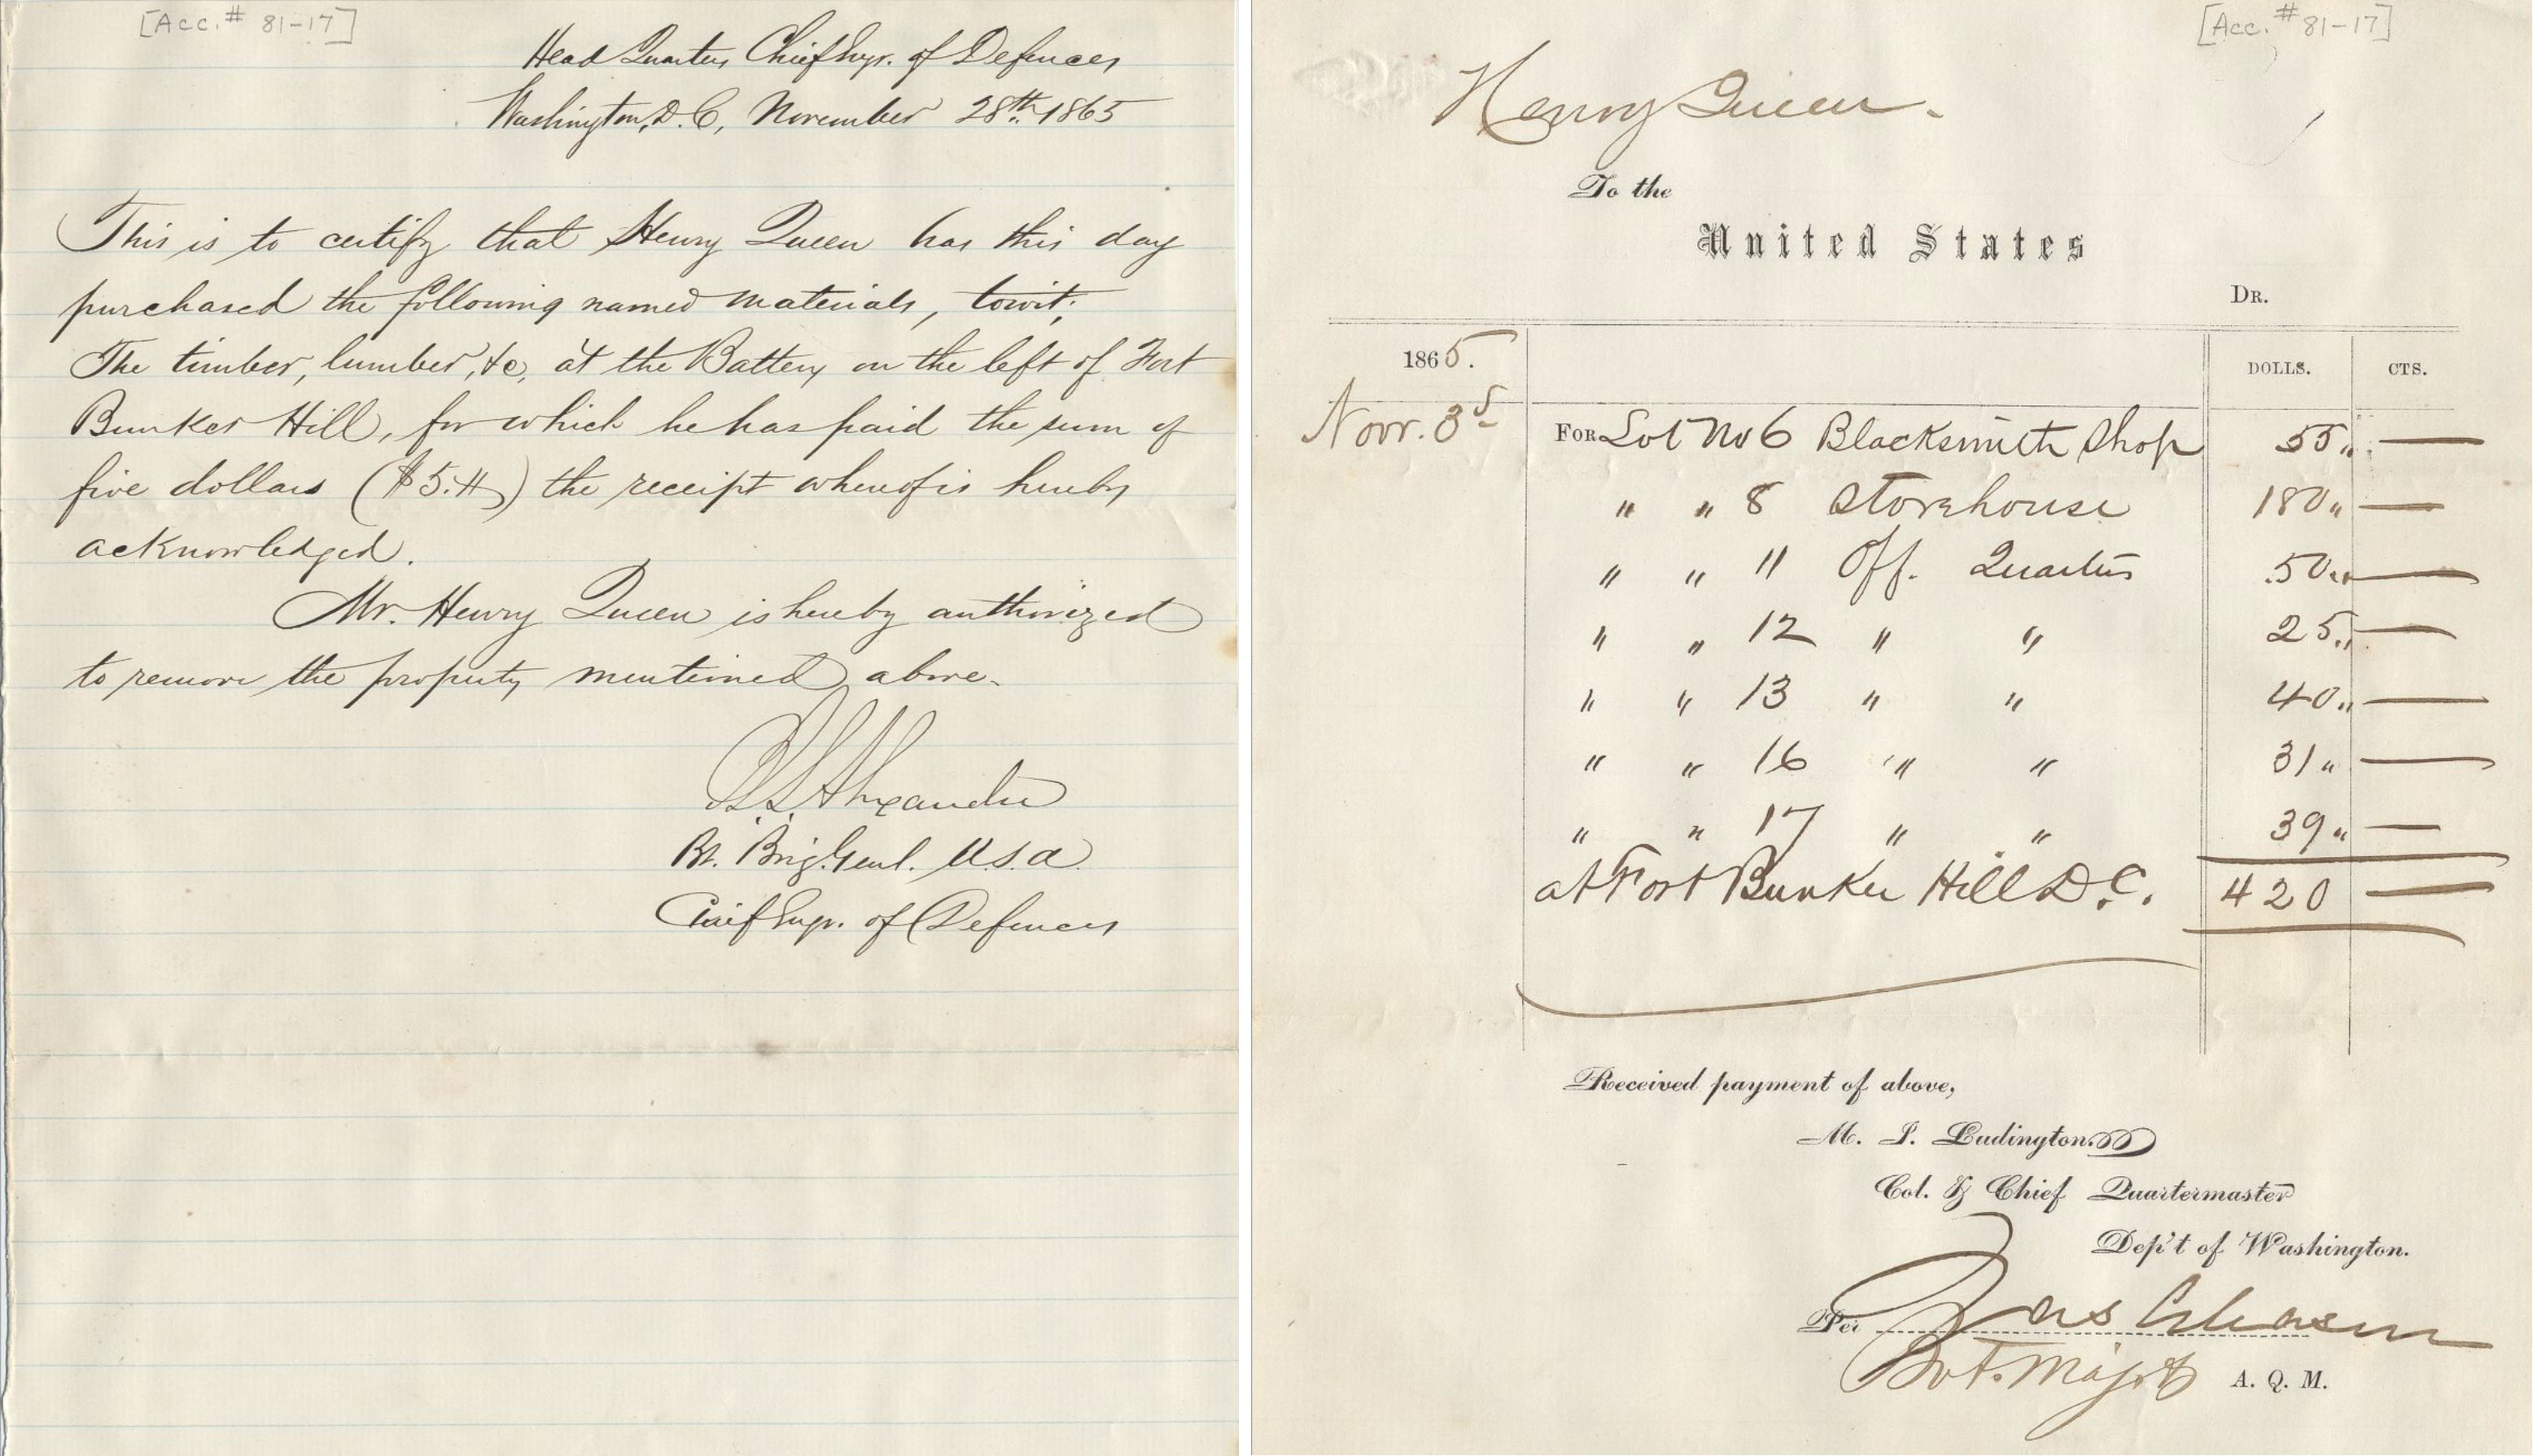 [Acc.# 81-17]
Head Quarters Chief Engr. of Defences
Washington, D.C, November 28th. 1865
This is to certify that Henry Queen has this day
purchased the following named materials, towit;
The timber, lumber, &c, at the Battery on the left of Fort
Bunker Hill, for which he has paid the sum of
five dollars ($5.00) the receipt whereof is hereby
acknowledged.
Mr. Henry Queen is hereby authorized
to remove the property mentioned above.
B.S. Alexander
Bt. Brig. Genl. U.S.A.
Chief Engr. of Defences
[Acc.# 81-17]
Henry Queen.
To the
United States
DR.
1865. DOLLS. CTS.
Novr. 3d FOR Lot No 6 Blacksmith Shop 55 " —
" " 8 Storehouse 180 " —
" " 11 Off. Quarters 50 " —
" " 12 " " 25 " —
" " 13 " " 40 " —
" " 16 " " 31 " —
" " 17 " " 39 " —
at Fort Bunker Hill D.C. 420 —
Received payment of above,
M. I. Ludington
Col. & Chief Quartermaster
Dep't of Washington.
Per Jas Gleason
Bvt. Major A. Q. M.